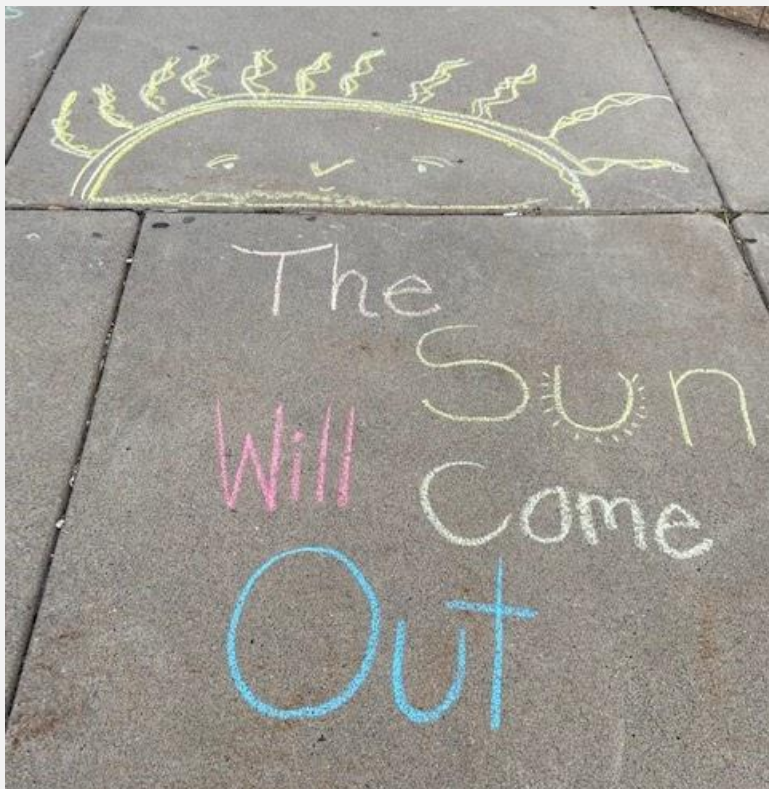 The
Sun
Will
Come
Out